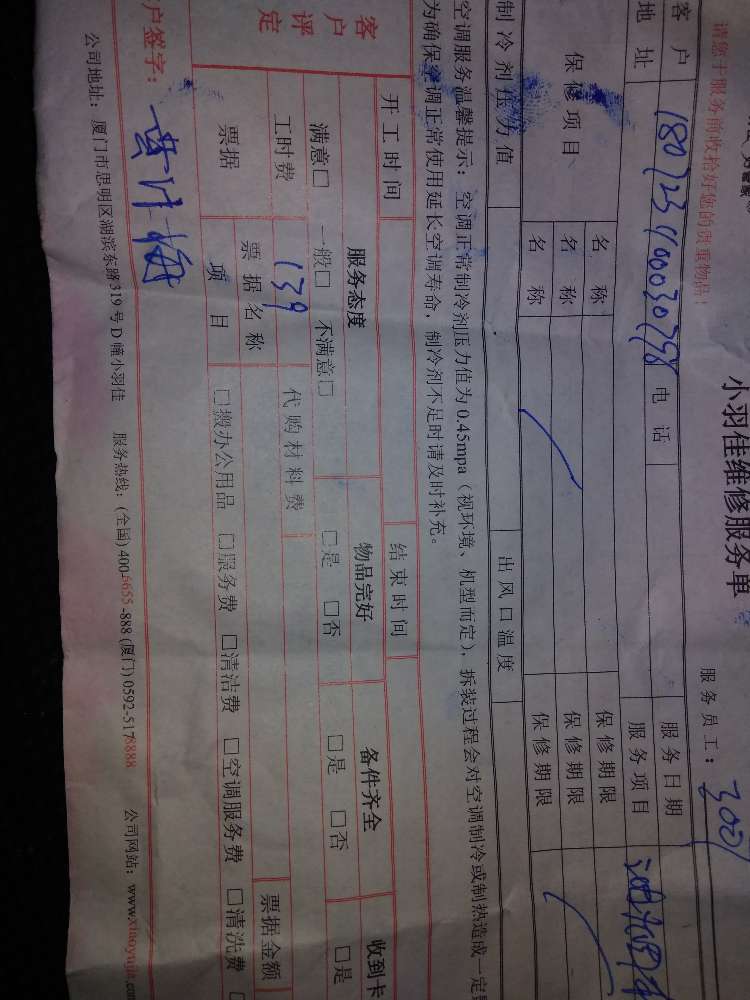 小羽佳维修服务单
请您于服务前收拾好您的贵重物品!
服务员工: 3001
客户 180723400030758 电话 服务日期
地址 服务项目
保修项目 名称 保修期限
名称 保修期限
名称 保修期限
制冷剂压力值 出风口温度
空调服务温馨提示:空调正常制冷剂压力值为0.45mpa(视环境、机型而定),拆装过程会对空调制冷或制热造成一定
为确保空调正常使用延长空调寿命,制冷剂不足时请及时补充。
开工时间 结束时间
客户评定 服务态度 物品完好 备件齐全 收到卡
满意□ 一般□ 不满意□ □是 □否 □是 □否 □是
工时费 139 代购材料费
票据 票据名称 票据金额
项目 □搬办公用品 □服务费 □清洁费 □空调服务费 □清洗费
户签字:
公司地址:厦门市思明区湖滨东路319号D幢小羽佳 服务热线:(全国)400-6655-888(厦门)0592-5178888 公司网站:www.xiaoyujia.co